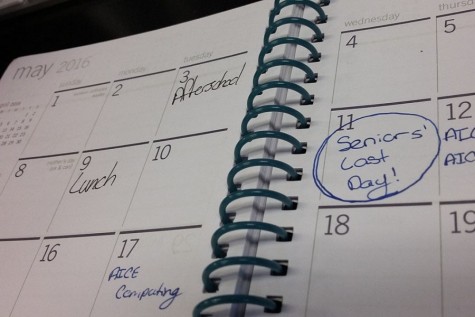 may 2016
sunday
monday
tuesday
wednesday
thurs
1
2
3
4
5
Afterschool
8
9
10
11
12
Lunch
Seniors'
Last
Day!
AIC
AIC
16
17
18
19
AICE
Computing